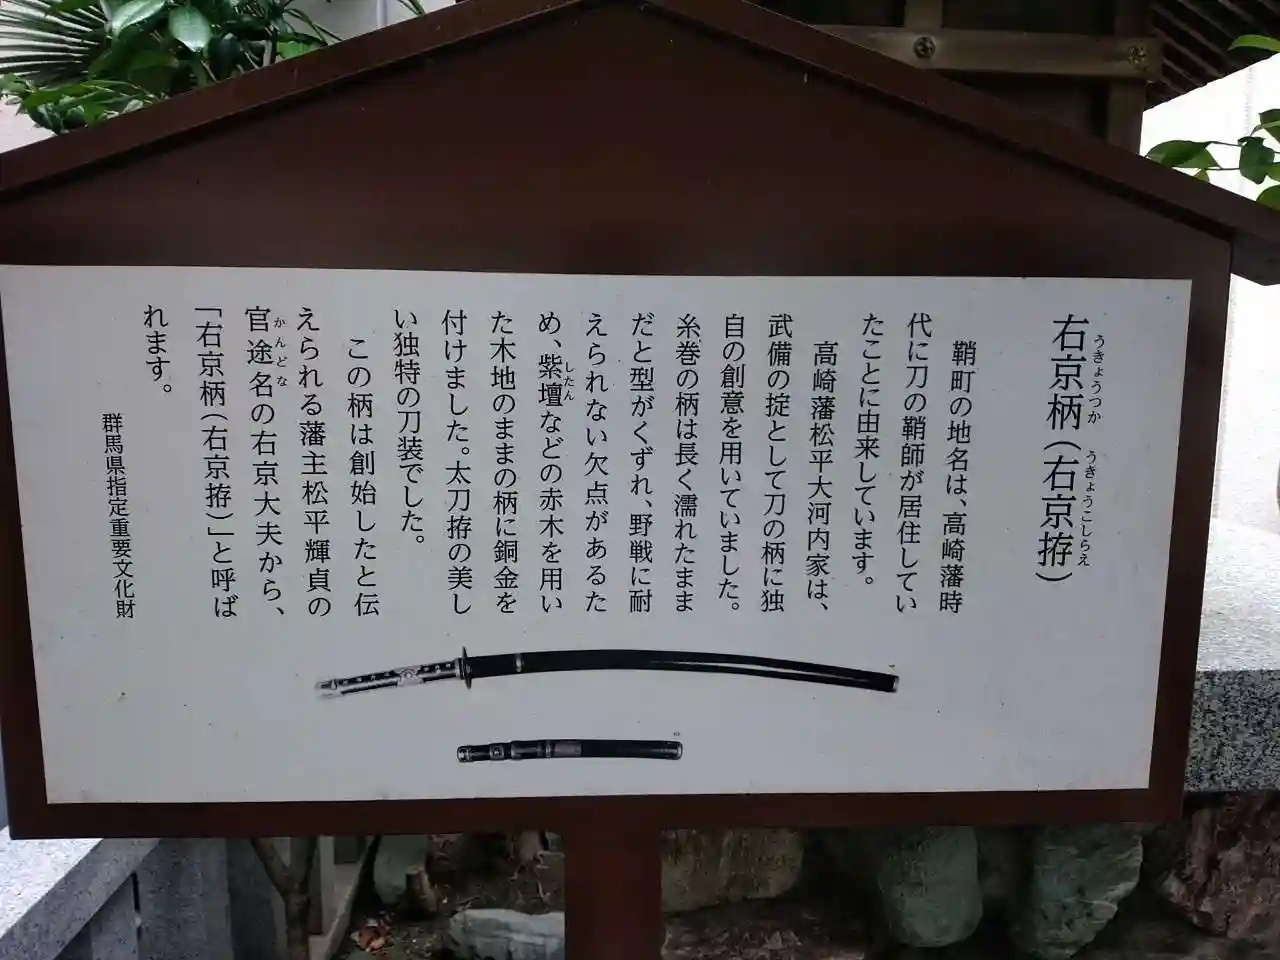 右京柄（右京拵）
うきょうつか
うきょうこしらえ
鞘町の地名は、高崎藩時
代に刀の鞘師が居住してい
たことに由来しています。
高崎藩松平大河内家は、
武備の掟として刀の柄に独
自の創意を用いていました。
糸巻の柄は長く濡れたまま
だと型がくずれ、野戦に耐
えられない欠点があるた
め、紫壇などの赤木を用い
したん
た木地のままの柄に銅金を
付けました。太刀拵の美し
い独特の刀装でした。
この柄は創始したと伝
えられる藩主松平輝貞の
官途名の右京大夫から、
かんどな
「右京柄（右京拵）」と呼ば
れます。
群馬県指定重要文化財